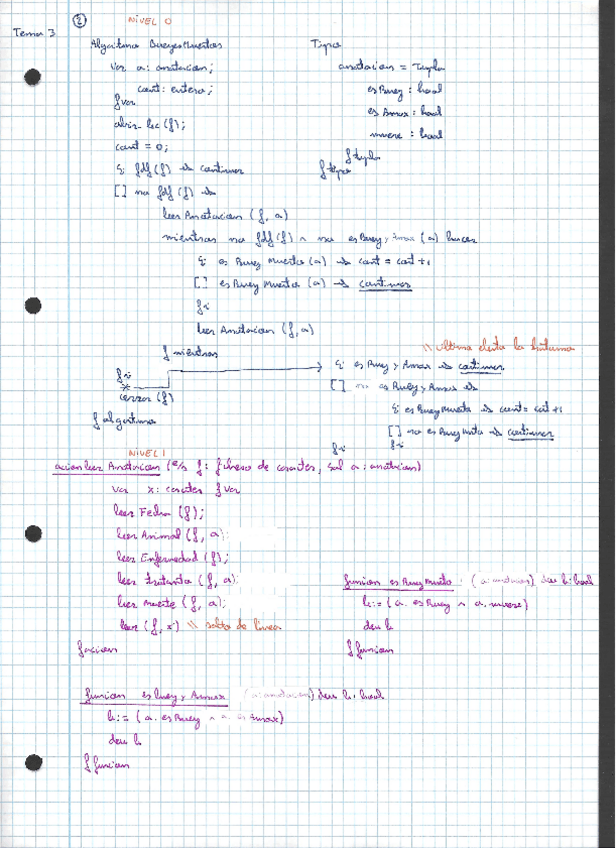 Tema 3
2
NIVEL 0
Algoritmo BueyesMuertos
var a: anotacion;
cant: entero;
fvar
abrir_lec (f);
cant = 0;
si fdf (f) → continuar
[] no fdf (f) →
leer Anotacion (f, a)
mientras no fdf (f) ∧ no esBuey y Amox (a) hacer
si es Buey Muerto (a) → cant = cant + 1
[] esBuey Muerto (a) → continuar
fsi
leer Anotacion (f, a)
fmientras
fsi
cerrar (f)
falgoritmo
Tipo
anotacion = Tupla
esBuey : bool
es Amox : bool
muere : bool
ftupla
ftipo
// ultima la
si es Buey y Amox → continuar
[] no es Buey y Amox →
si es BueyMuerto → cant = cant + 1
[] no es BueyMuerto → continuar
fsi
fsi
NIVEL 1
accion leer Anotacion (e/s f: fichero de caracter, sal a: anotacion)
var x: caracter fvar
leer Fecha (f);
leer Animal (f, a)
leer Enfermedad (f);
leer (f, a);
leer Muerte (f, a);
leer (f, x) // salto de linea
faccion
funcion es Buey Muerto (a: anotacion) dev b: bool
b := (a. es Buey ∧ a. muere)
dev b
ffuncion
funcion es buey y Amox (a: anotacion) dev b: bool
b := (a. esBuey ∧ a. es Amox)
dev b
ffuncion